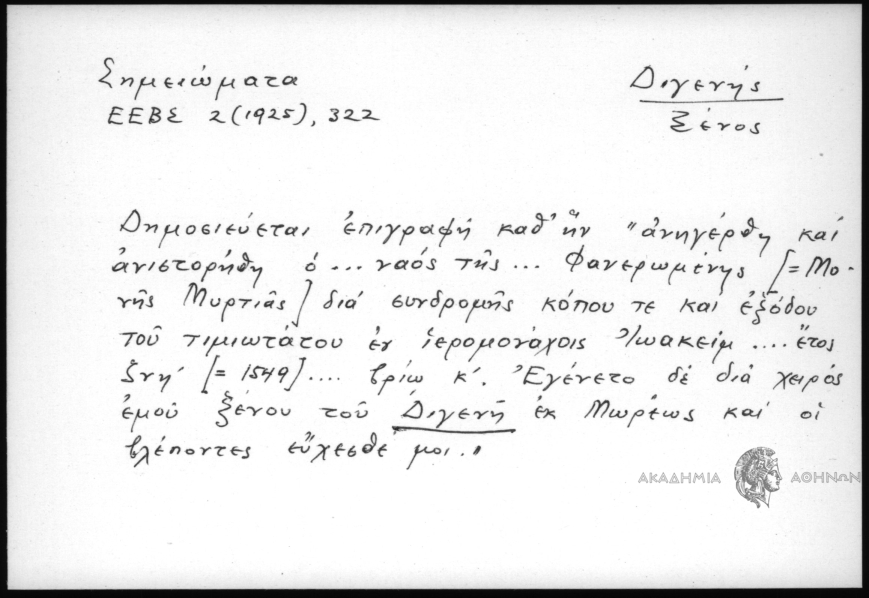 Σημειώματα
ΕΕΒΣ 2(1925), 322
Διγενής
Ξένος
Δημοσιεύεται ἐπιγραφή καθ' ἥν "ἀνηγέρθη καί
ἀνιστορήθη ὁ ... ναός τῆς ... Φανερωμένης [=Μο-
νῆς Μυρτιᾶς] διά συνδρομῆς κόπου τε καί ἐξόδου
τοῦ τιμιωτάτου ἐν ἱερομονάχοις Ἰωακείμ .... ἔτος
ζνη' [=1549] .... βρίω κ'. Ἐγένετο δέ διά χειρός
ἐμοῦ Ξένου τοῦ Διγενῆ ἐκ Μωρέως καί οἱ
βλέποντες εὔχεσθέ μοι."
ΑΚΑΔΗΜΙΑ ΑΘΗΝΩΝ